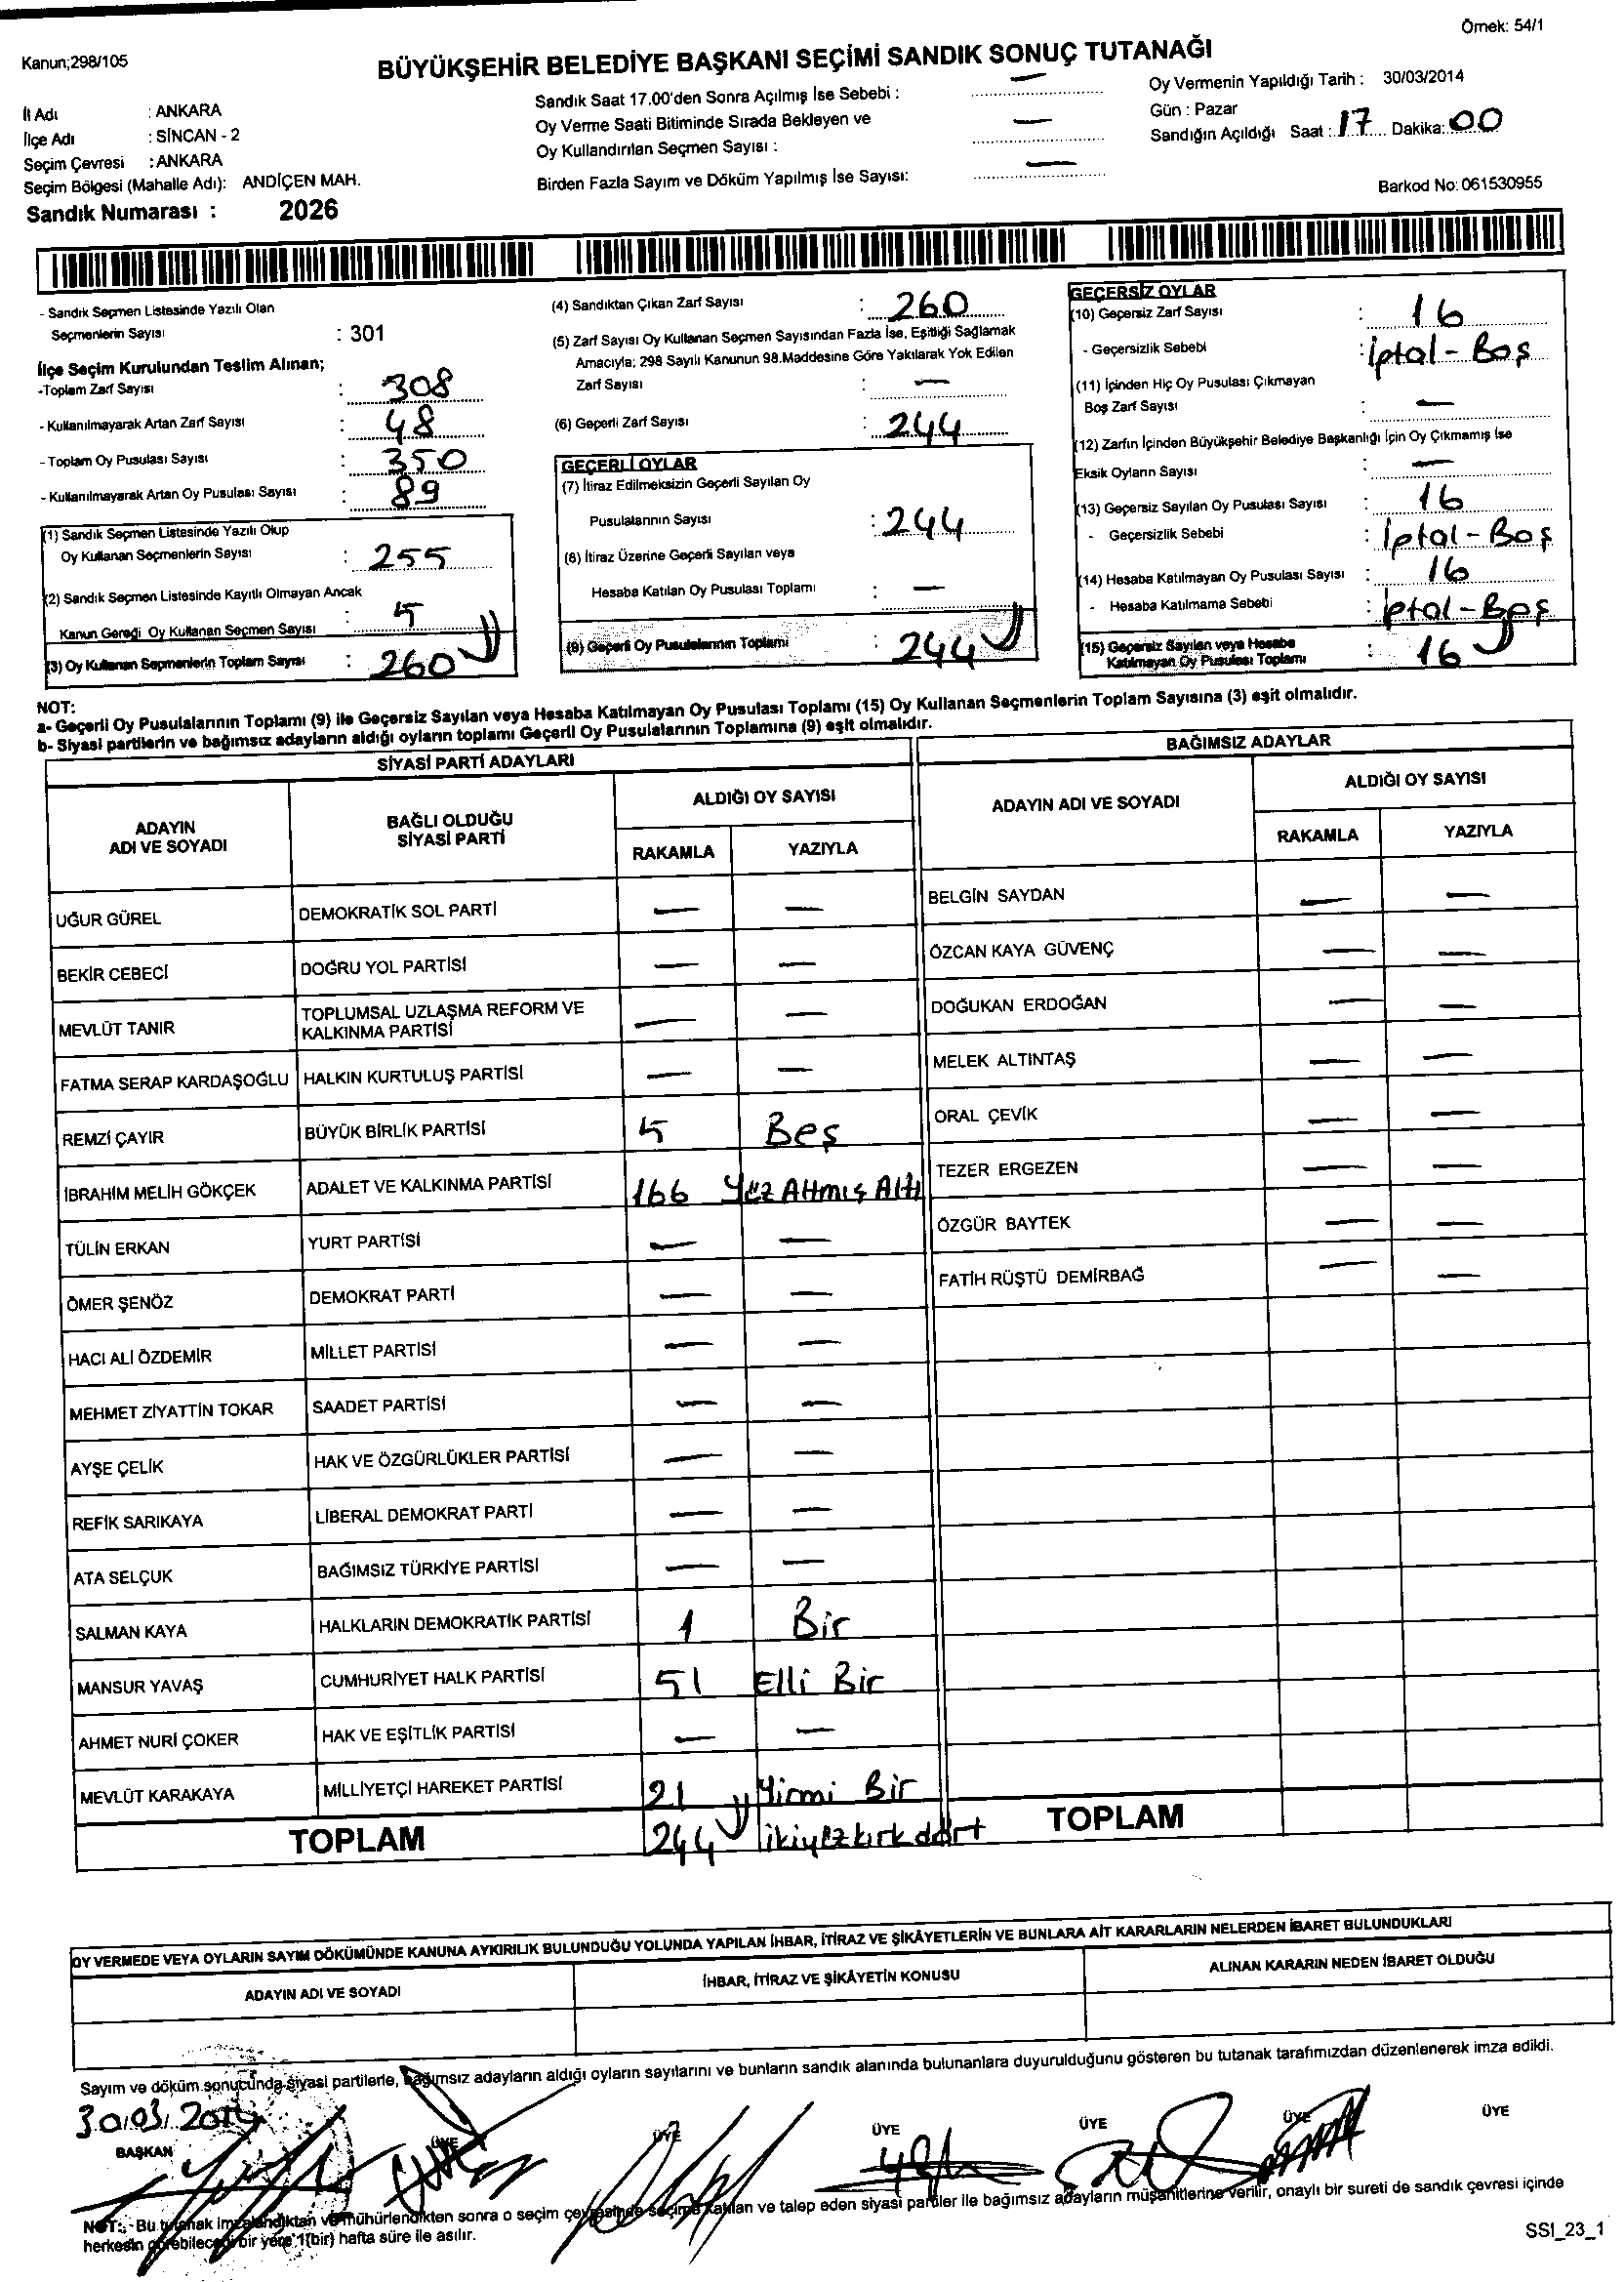 Örnek: 54/1
Kanun;298/105
BÜYÜKŞEHİR BELEDİYE BAŞKANI SEÇİMİ SANDIK SONUÇ TUTANAĞI
İl Adı : ANKARA
İlçe Adı : SİNCAN - 2
Seçim Çevresi : ANKARA
Seçim Bölgesi (Mahalle Adı): ANDİÇEN MAH.
Sandık Numarası : 2026
Sandık Saat 17.00'den Sonra Açılmış İse Sebebi : —
Oy Verme Saati Bitiminde Sırada Bekleyen ve
Oy Kullandırılan Seçmen Sayısı : —
Birden Fazla Sayım ve Döküm Yapılmış İse Sayısı: —
Oy Vermenin Yapıldığı Tarih : 30/03/2014
Gün : Pazar
Sandığın Açıldığı Saat : 17 Dakika: 00
Barkod No: 061530955
- Sandık Seçmen Listesinde Yazılı Olan
Seçmenlerin Sayısı : 301
İlçe Seçim Kurulundan Teslim Alınan;
-Toplam Zarf Sayısı : 308
- Kullanılmayarak Artan Zarf Sayısı : 48
- Toplam Oy Pusulası Sayısı : 350
- Kullanılmayarak Artan Oy Pusulası Sayısı : 89
(1) Sandık Seçmen Listesinde Yazılı Olup
Oy Kullanan Seçmenlerin Sayısı : 255
(2) Sandık Seçmen Listesinde Kayıtlı Olmayan Ancak
Kanun Gereği Oy Kullanan Seçmen Sayısı : 5
(3) Oy Kullanan Seçmenlerin Toplam Sayısı : 260
(4) Sandıktan Çıkan Zarf Sayısı : 260
(5) Zarf Sayısı Oy Kullanan Seçmen Sayısından Fazla İse, Eşitliği Sağlamak
Amacıyla; 298 Sayılı Kanunun 98.Maddesine Göre Yakılarak Yok Edilen
Zarf Sayısı : —
(6) Geçerli Zarf Sayısı : 244
GEÇERLİ OYLAR
(7) İtiraz Edilmeksizin Geçerli Sayılan Oy
Pusulalarının Sayısı : 244
(8) İtiraz Üzerine Geçerli Sayılan veya
Hesaba Katılan Oy Pusulası Toplamı : —
(9) Geçerli Oy Pusulalarının Toplamı : 244
GEÇERSİZ OYLAR
(10) Geçersiz Zarf Sayısı : 16
- Geçersizlik Sebebi : İptal - Boş
(11) İçinden Hiç Oy Pusulası Çıkmayan
Boş Zarf Sayısı : —
(12) Zarfın İçinden Büyükşehir Belediye Başkanlığı İçin Oy Çıkmamış İse
Eksik Oyların Sayısı : —
(13) Geçersiz Sayılan Oy Pusulası Sayısı : 16
- Geçersizlik Sebebi : İptal - Boş
(14) Hesaba Katılmayan Oy Pusulası Sayısı : 16
- Hesaba Katılmama Sebebi : İptal - Boş
(15) Geçersiz Sayılan veya Hesaba
Katılmayan Oy Pusulası Toplamı : 16
NOT:
a- Geçerli Oy Pusulalarının Toplamı (9) ile Geçersiz Sayılan veya Hesaba Katılmayan Oy Pusulası Toplamı (15) Oy Kullanan Seçmenlerin Toplam Sayısına (3) eşit olmalıdır.
b- Siyasi partilerin ve bağımsız adayların aldığı oyların toplamı Geçerli Oy Pusulalarının Toplamına (9) eşit olmalıdır.
SİYASİ PARTİ ADAYLARI
ADAYIN ADI VE SOYADI BAĞLI OLDUĞU SİYASİ PARTİ ALDIĞI OY SAYISI
RAKAMLA YAZIYLA
UĞUR GÜREL DEMOKRATİK SOL PARTİ — —
BEKİR CEBECİ DOĞRU YOL PARTİSİ — —
MEVLÜT TANIR TOPLUMSAL UZLAŞMA REFORM VE KALKINMA PARTİSİ — —
FATMA SERAP KARDAŞOĞLU HALKIN KURTULUŞ PARTİSİ — —
REMZİ ÇAYIR BÜYÜK BİRLİK PARTİSİ 5 Beş
İBRAHİM MELİH GÖKÇEK ADALET VE KALKINMA PARTİSİ 166 Yüz Altmış Altı
TÜLİN ERKAN YURT PARTİSİ — —
ÖMER ŞENÖZ DEMOKRAT PARTİ — —
HACI ALİ ÖZDEMİR MİLLET PARTİSİ — —
MEHMET ZİYATTİN TOKAR SAADET PARTİSİ — —
AYŞE ÇELİK HAK VE ÖZGÜRLÜKLER PARTİSİ — —
REFİK SARIKAYA LİBERAL DEMOKRAT PARTİ — —
ATA SELÇUK BAĞIMSIZ TÜRKİYE PARTİSİ — —
SALMAN KAYA HALKLARIN DEMOKRATİK PARTİSİ 1 Bir
MANSUR YAVAŞ CUMHURİYET HALK PARTİSİ 51 Elli Bir
AHMET NURİ ÇOKER HAK VE EŞİTLİK PARTİSİ — —
MEVLÜT KARAKAYA MİLLİYETÇİ HAREKET PARTİSİ 21 Yirmi Bir
TOPLAM 244 ikiyüzkırkdört
BAĞIMSIZ ADAYLAR
ADAYIN ADI VE SOYADI ALDIĞI OY SAYISI
RAKAMLA YAZIYLA
BELGİN SAYDAN — —
ÖZCAN KAYA GÜVENÇ — —
DOĞUKAN ERDOĞAN — —
MELEK ALTINTAŞ — —
ORAL ÇEVİK — —
TEZER ERGEZEN — —
ÖZGÜR BAYTEK — —
FATİH RÜŞTÜ DEMİRBAĞ — —
TOPLAM
OY VERMEDE VEYA OYLARIN SAYIM DÖKÜMÜNDE KANUNA AYKIRILIK BULUNDUĞU YOLUNDA YAPILAN İHBAR, İTİRAZ VE ŞİKÂYETLERİN VE BUNLARA AİT KARARLARIN NELERDEN İBARET BULUNDUKLARI
ADAYIN ADI VE SOYADI İHBAR, İTİRAZ VE ŞİKÂYETİN KONUSU ALINAN KARARIN NEDEN İBARET OLDUĞU
Sayım ve döküm sonucunda siyasi partilerle, bağımsız adayların aldığı oyların sayılarını ve bunların sandık alanında bulunanlara duyurulduğunu gösteren bu tutanak tarafımızdan düzenlenerek imza edildi.
30/03/2014
BAŞKAN ÜYE ÜYE ÜYE ÜYE ÜYE ÜYE
NOT: - Bu tutanak imzalandıktan ve mühürlendikten sonra o seçim çevresinde seçime katılan ve talep eden siyasi partiler ile bağımsız adayların müşahitlerine verilir, onaylı bir sureti de sandık çevresi içinde
herkesin görebileceği bir yere 1(bir) hafta süre ile asılır.
SSI_23_1